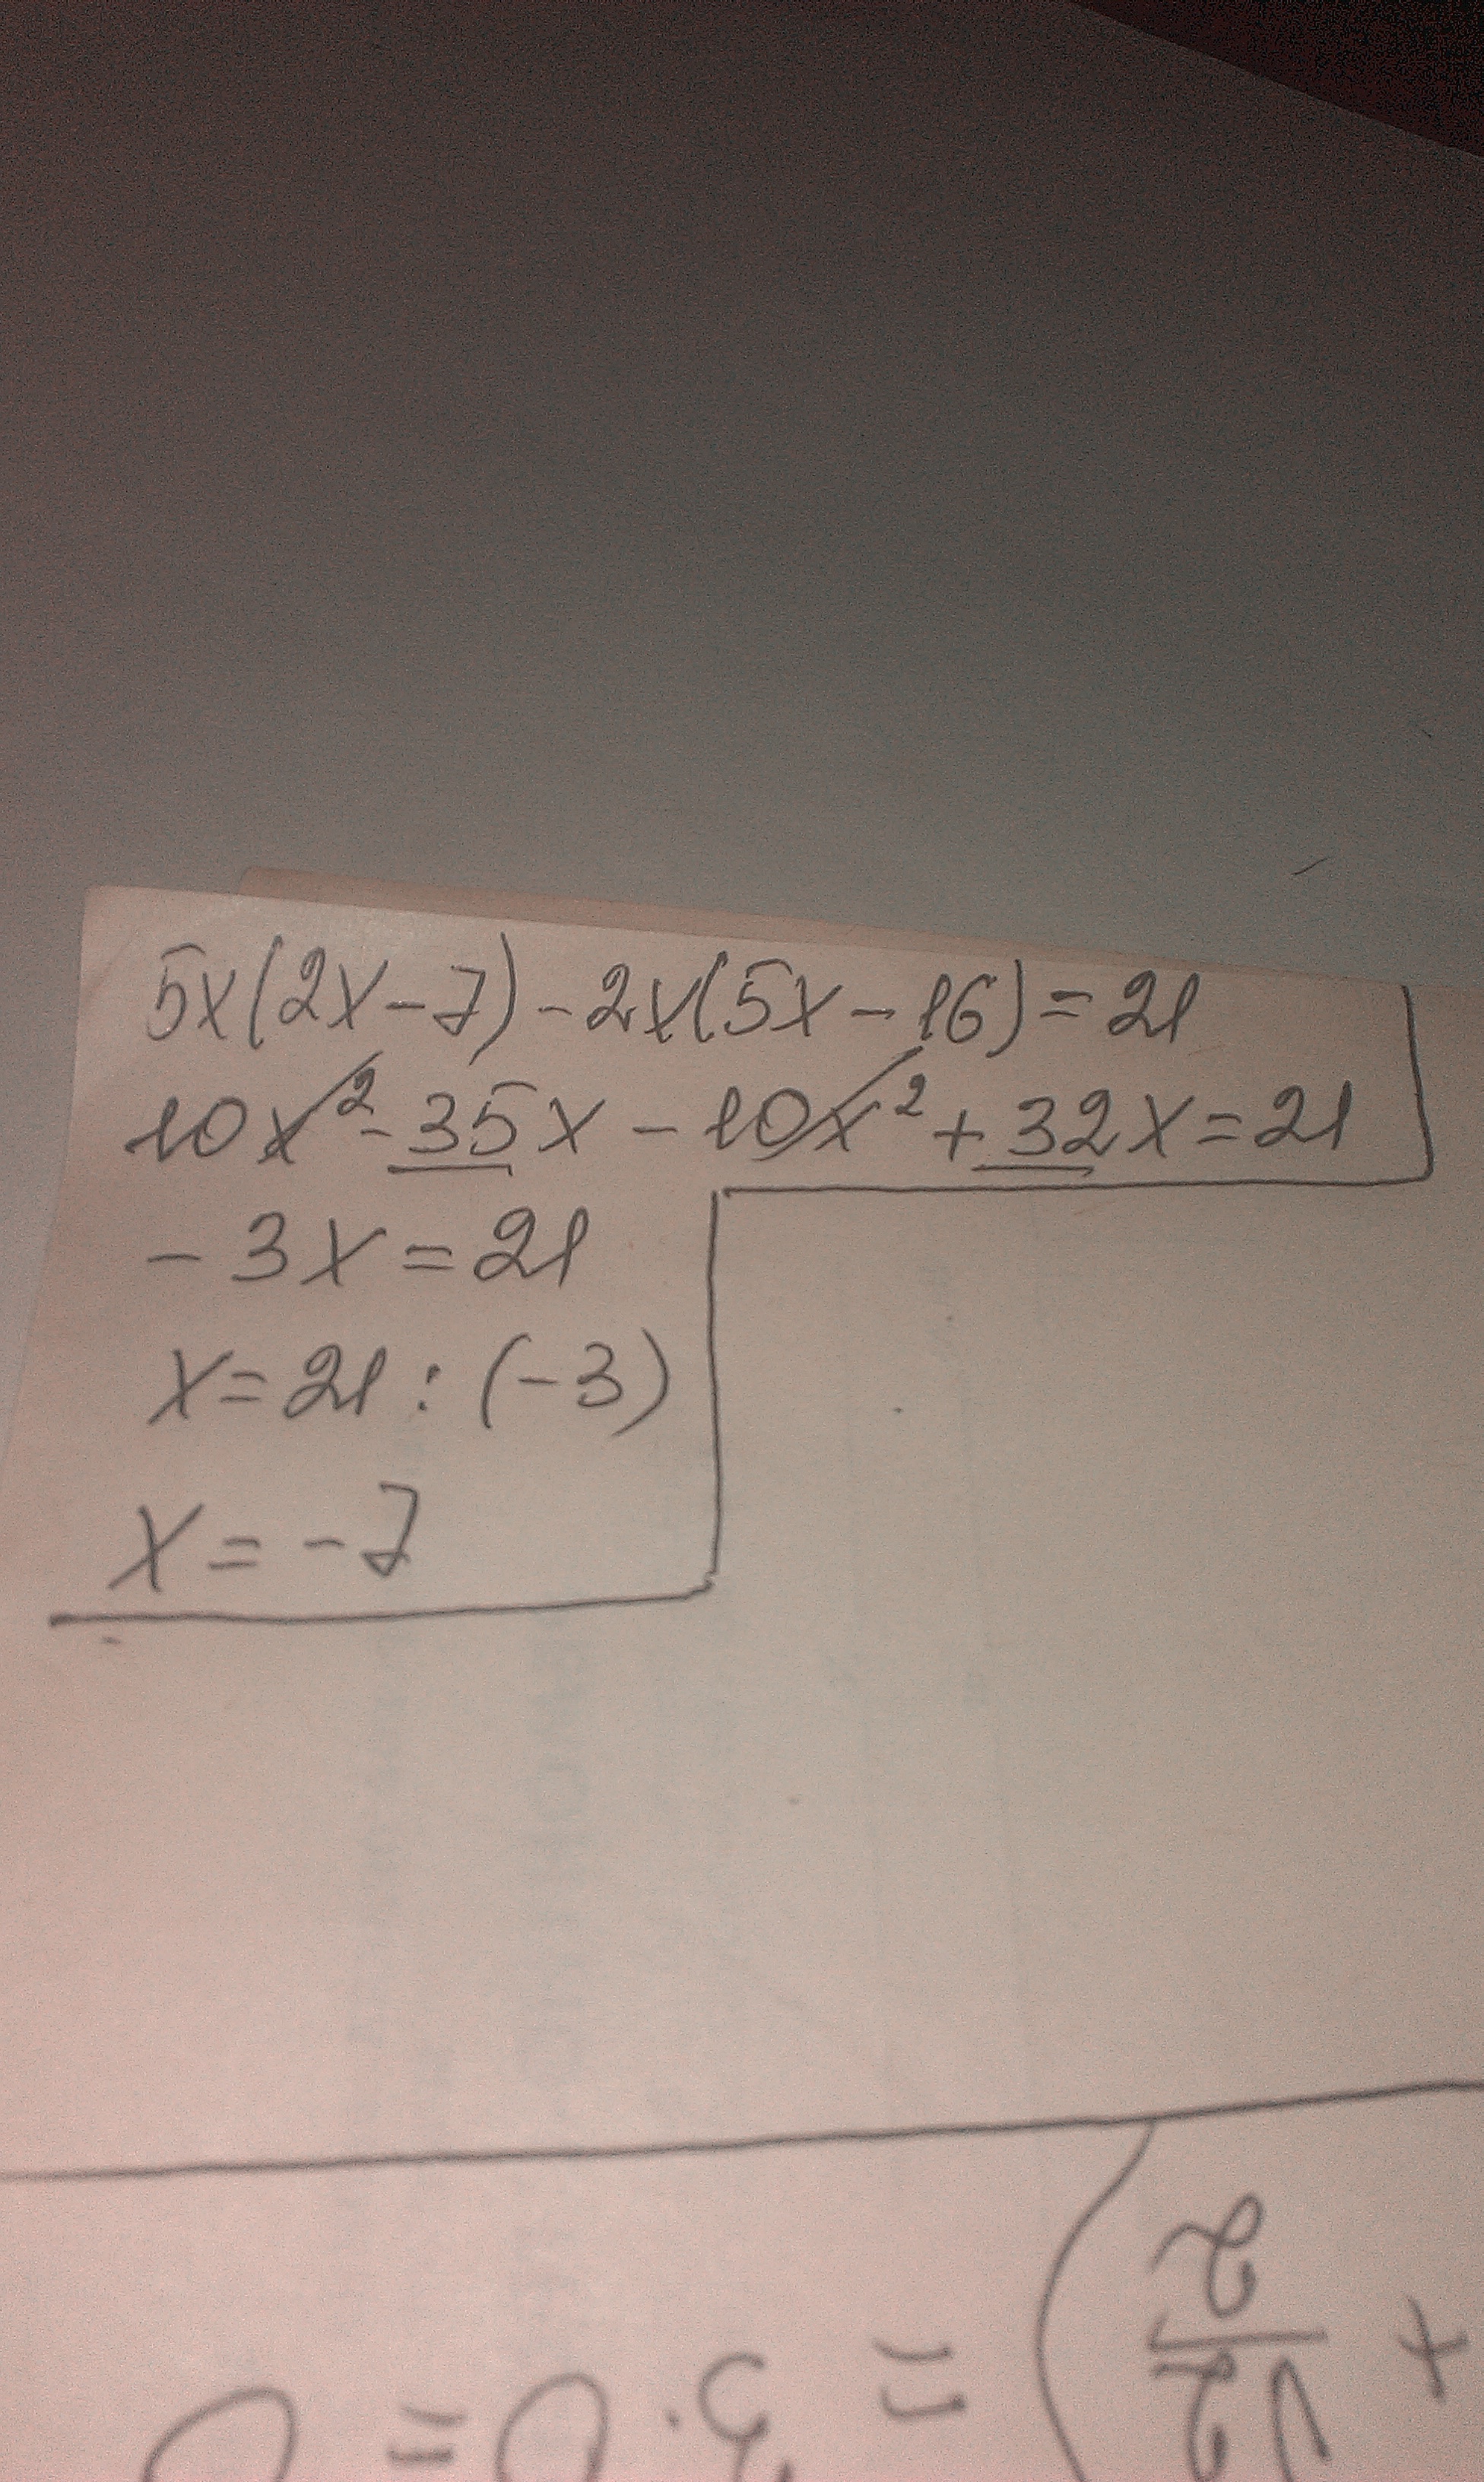 5x(2x-7)-2x(5x-16)=21
10x²-35x-10x²+32x=21
-3x=21
x=21:(-3)
x=-7